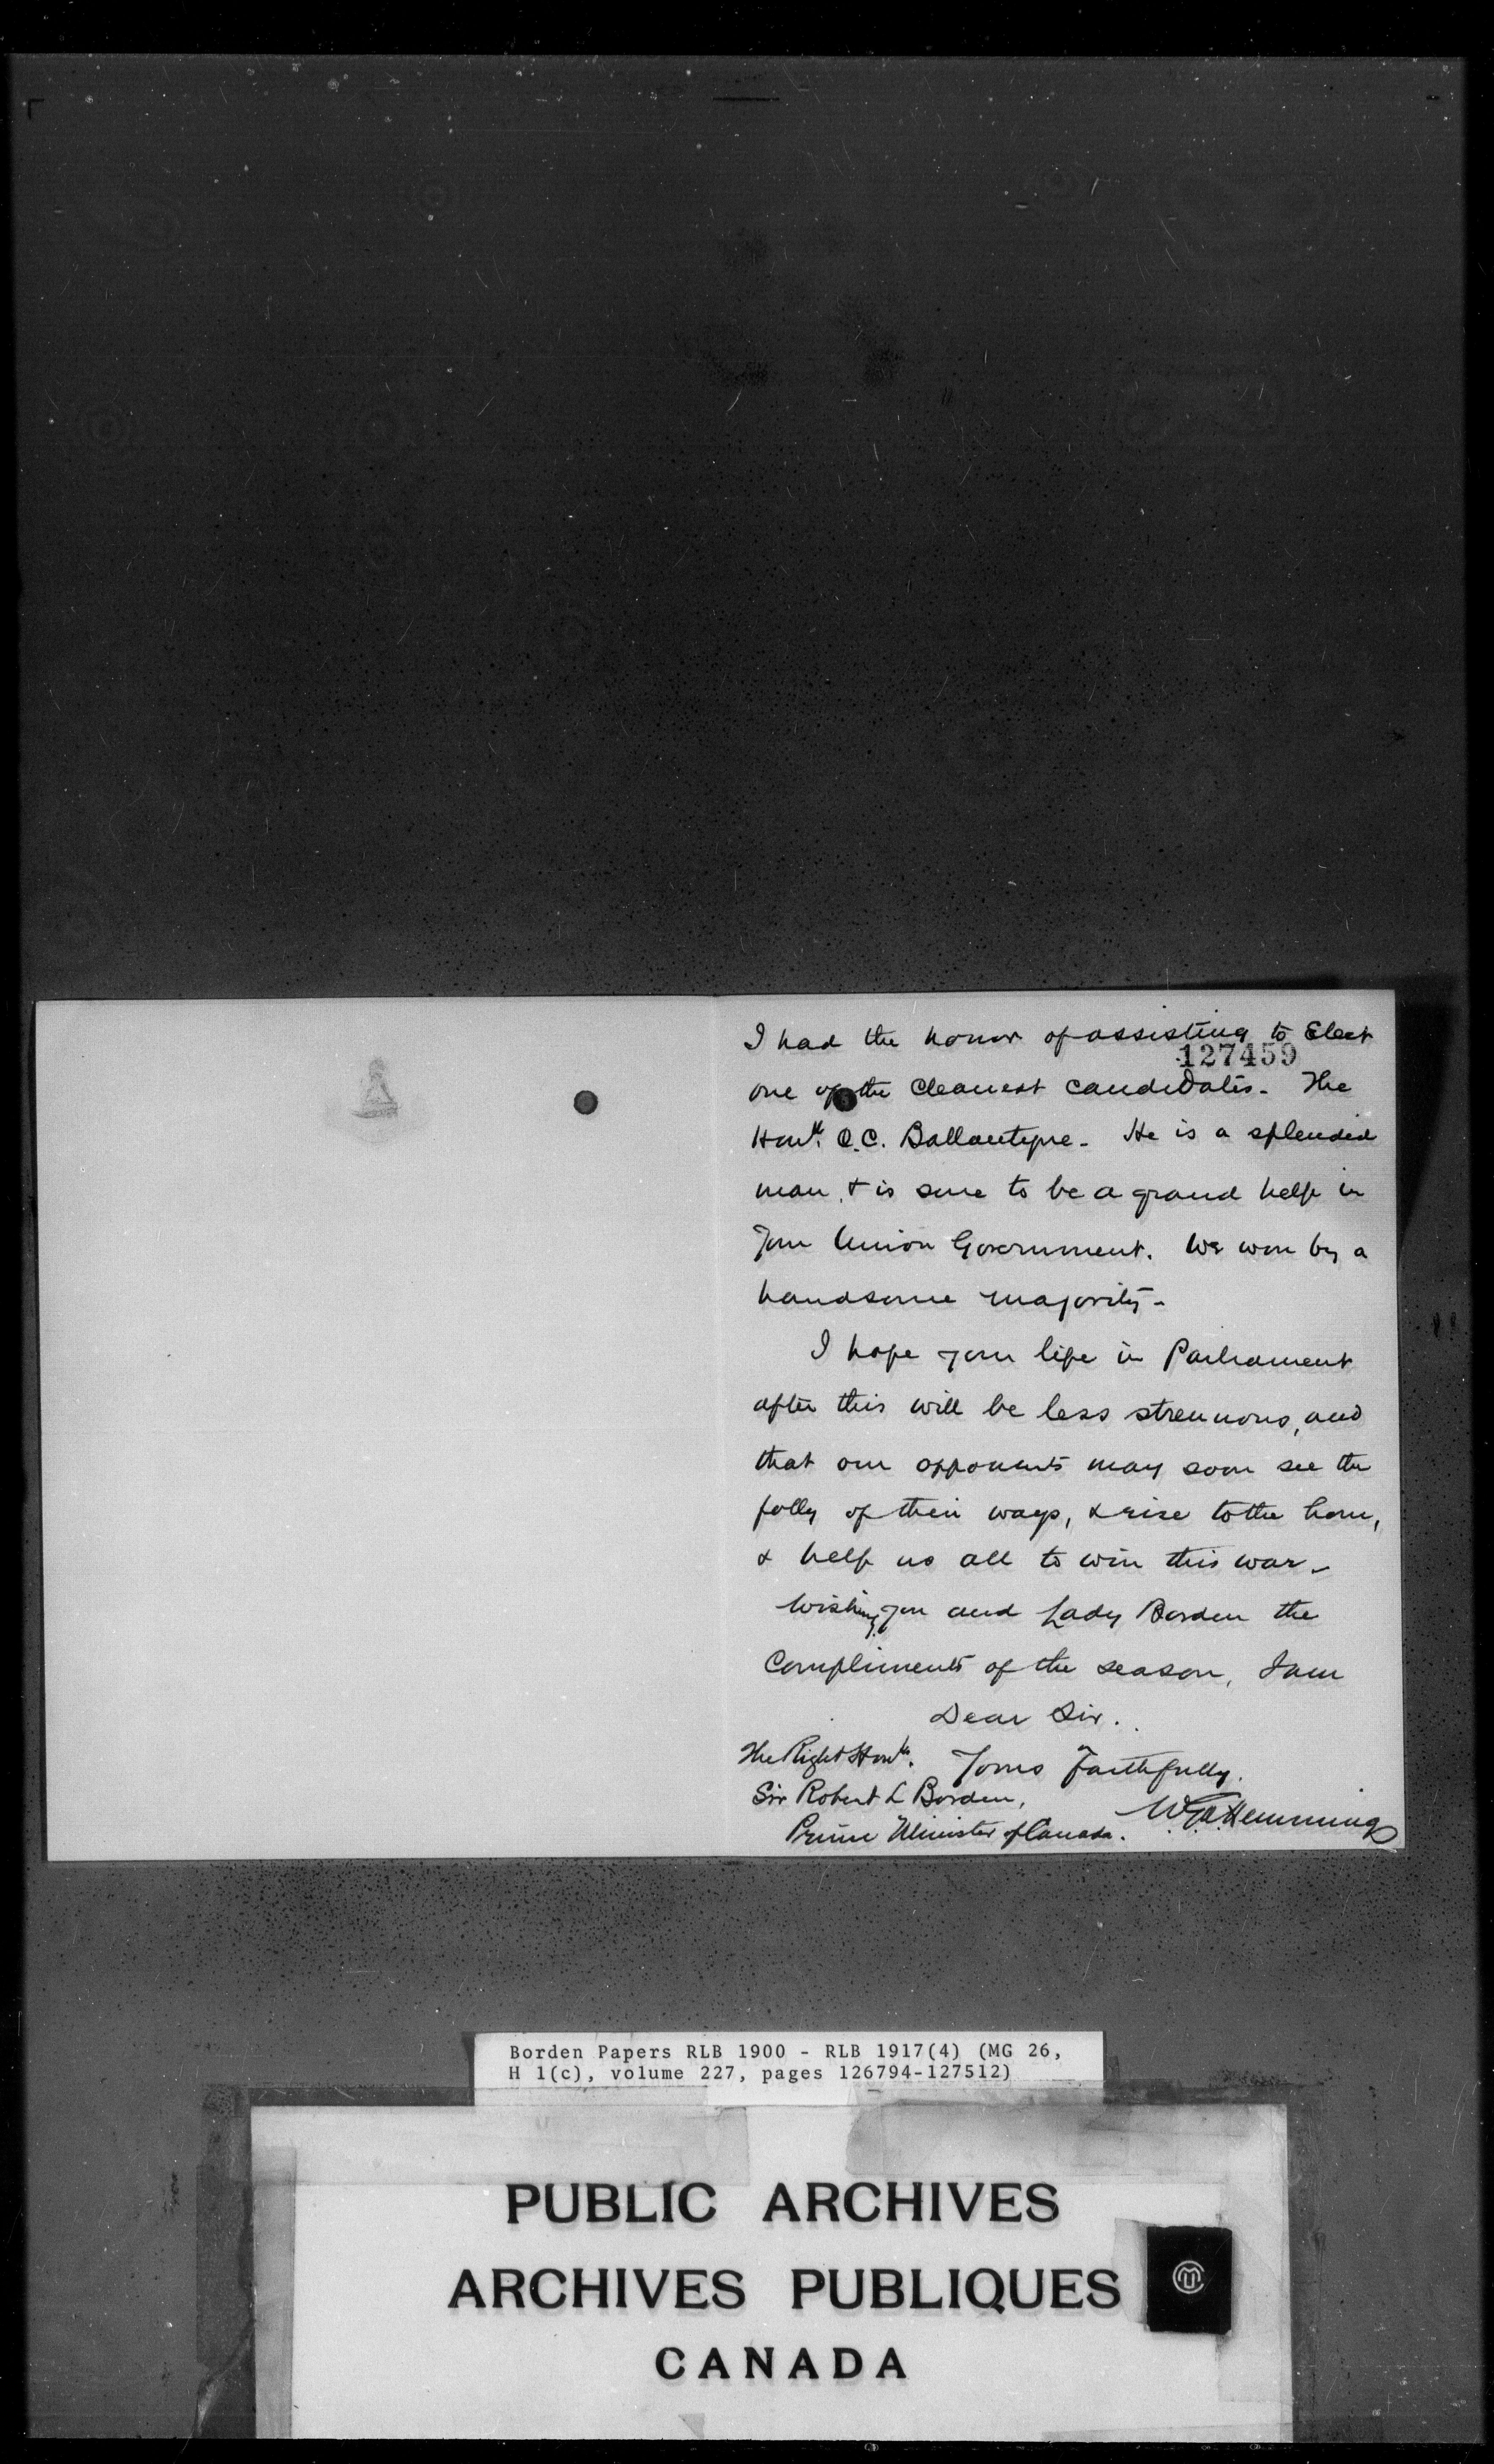 I had the honor of assisting to Elect
127459
one of the cleanest candidates. The
Honble C.C. Ballantyne. He is a splendid
man, & is sure to be a grand help in
your Union Government. We won by a
handsome majority.
I hope your life in Parliament
after this will be less strenuous, and
that our opponents may soon see the
folly of their ways, & rise to the hour,
& help us all to win this war.
Wishing you and Lady Borden the
Compliments of the season, I am
Dear Sir.
The Right Honble. Yours Faithfully.
Sir Robert L Borden,
Prime Minister of Canada. Hemming
Borden Papers RLB 1900 - RLB 1917(4) (MG 26,
H 1(c), volume 227, pages 126794-127512)
PUBLIC ARCHIVES
ARCHIVES PUBLIQUES
CANADA